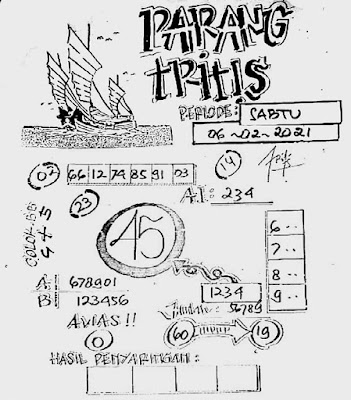 PARANG
TRITIS
PERIODE: SABTU
06-02-2021
02 66 12 74 85 91 03 14
A.I: 234
23
COLOK BB
4x5
45
6..
7..
8..
9..
A: 678901
B: 123456
1234
56789
AVIAS!!
0
60 19
HASIL PENYARINGAN: